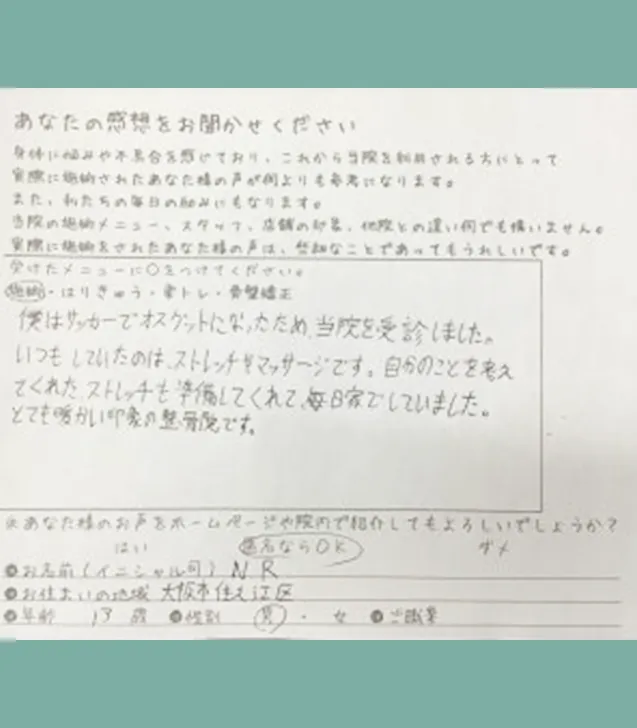 あなたの感想をお聞かせください
身体に悩みや不具合を感じており、これから当院を利用される方にとって
実際に施術されたあなた様の声が何よりも参考になります。
また、私たちの毎日の励みにもなります。
当院の施術メニュー、スタッフ、店舗の印象、他院との違い何でも構いません。
実際に施術をされたあなた様の声は、些細なことであってもうれしいです。
受けたメニューに○をつけてください。
施術・はりきゅう・楽トレ・骨盤矯正
僕はサッカーでオスグットになったため、当院を受診しました。
いつもしていたのは、ストレッチやマッサージです。自分のことを考え
てくれたストレッチも準備してくれて、毎日家でしていました。
とても暖かい印象の整骨院です。
※あなた様のお声をホームページや院内で紹介してもよろしいでしょうか?
はい 匿名ならOK ダメ
●お名前(イニシャル可) N R
●お住まいの地域 大阪市住之江区
●年齢 13 歳 ●性別 男・女 ●ご職業